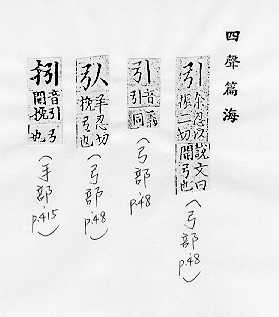 四聲篇海
引 余忍 振二切說文曰開弓也
(弓部 p.48)
引 音引義同
(弓部 p.48)
弘 羊忍切挽弓也
(弓部 p.48)
音引弓開挽也
(手部 p.415)